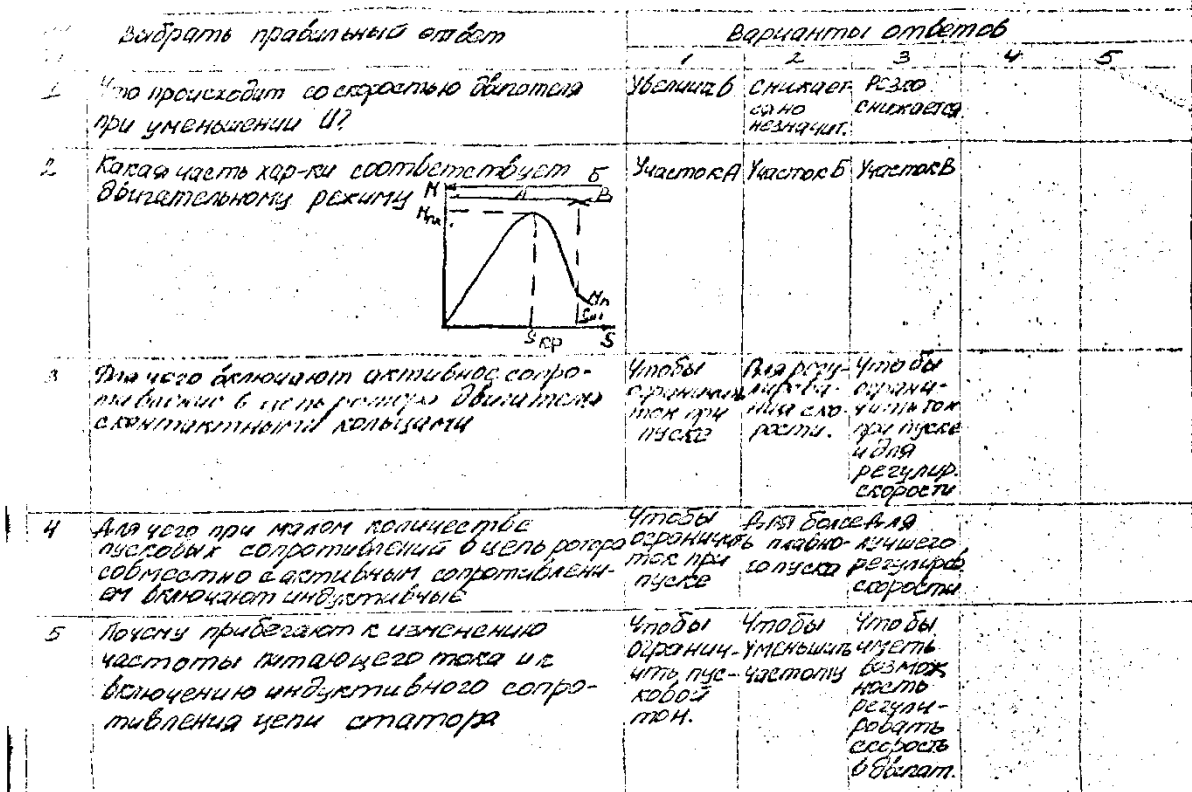 Выбрать правильный ответ
Варианты ответов
1 2 3 4 5
1 Что происходит со скоростью двигателя
при уменьшении U?
Увелич в
снижает
ся но
незначит.
Резко
снижается
2 Какая часть хар-ки соответствует
двигательному режиму
Б
M
A
B
Mп
S
Sкр
Участок А
Участок Б
Участок В
3 Для чего включают активное сопро-
тивление в цепь ротора двигателя
с контактными кольцами
Чтобы
ограничить
ток при
пуске
Для регу-
лирова-
ния ско-
рости.
Чтобы
ограни-
чить ток
при пуске
и для
регулир.
скорости
4 Для чего при малом количестве
пусковых сопротивлений в цепь ротора
совместно с активным сопротивлени-
ем включают индуктивные
Чтобы
ограничить
ток при
пуске
Для более
плавно-
го пуска
Для
лучшего
регулиров
скорости
5 Почему прибегают к изменению
частоты питающего тока и к
включению индуктивного сопро-
тивления цепи статора
Чтобы
огранич-
ить пус-
ковой
ток.
Чтобы
уменьшить
частоту
Чтобы
иметь
возмож
ность
регули-
ровать
скорость
в двигат.